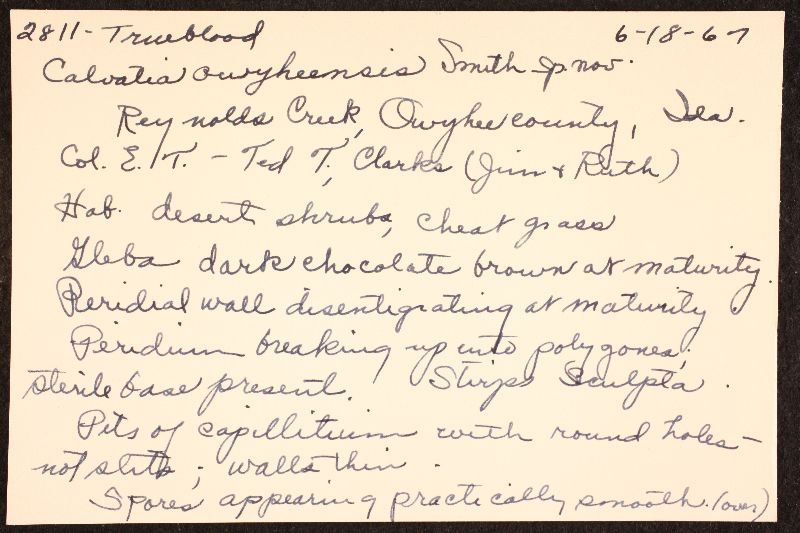 2811 - Trueblood 6-18-67
Calvatia owyheensis Smith sp. nov.
Reynolds Creek, Owyhee county, Ida.
Col. E. T. - Ted T., Clarks (Jim & Ruth)
Hab. desert shrubs, cheat grass
Gleba dark chocolate brown at maturity.
Peridial wall disentigrating at maturity.
Peridium breaking up into polygones;
sterile base present. Stirps Sculpta.
Pits of capillitium with round holes -
not slits; walls thin.
Spores appearing practically smooth. (over)